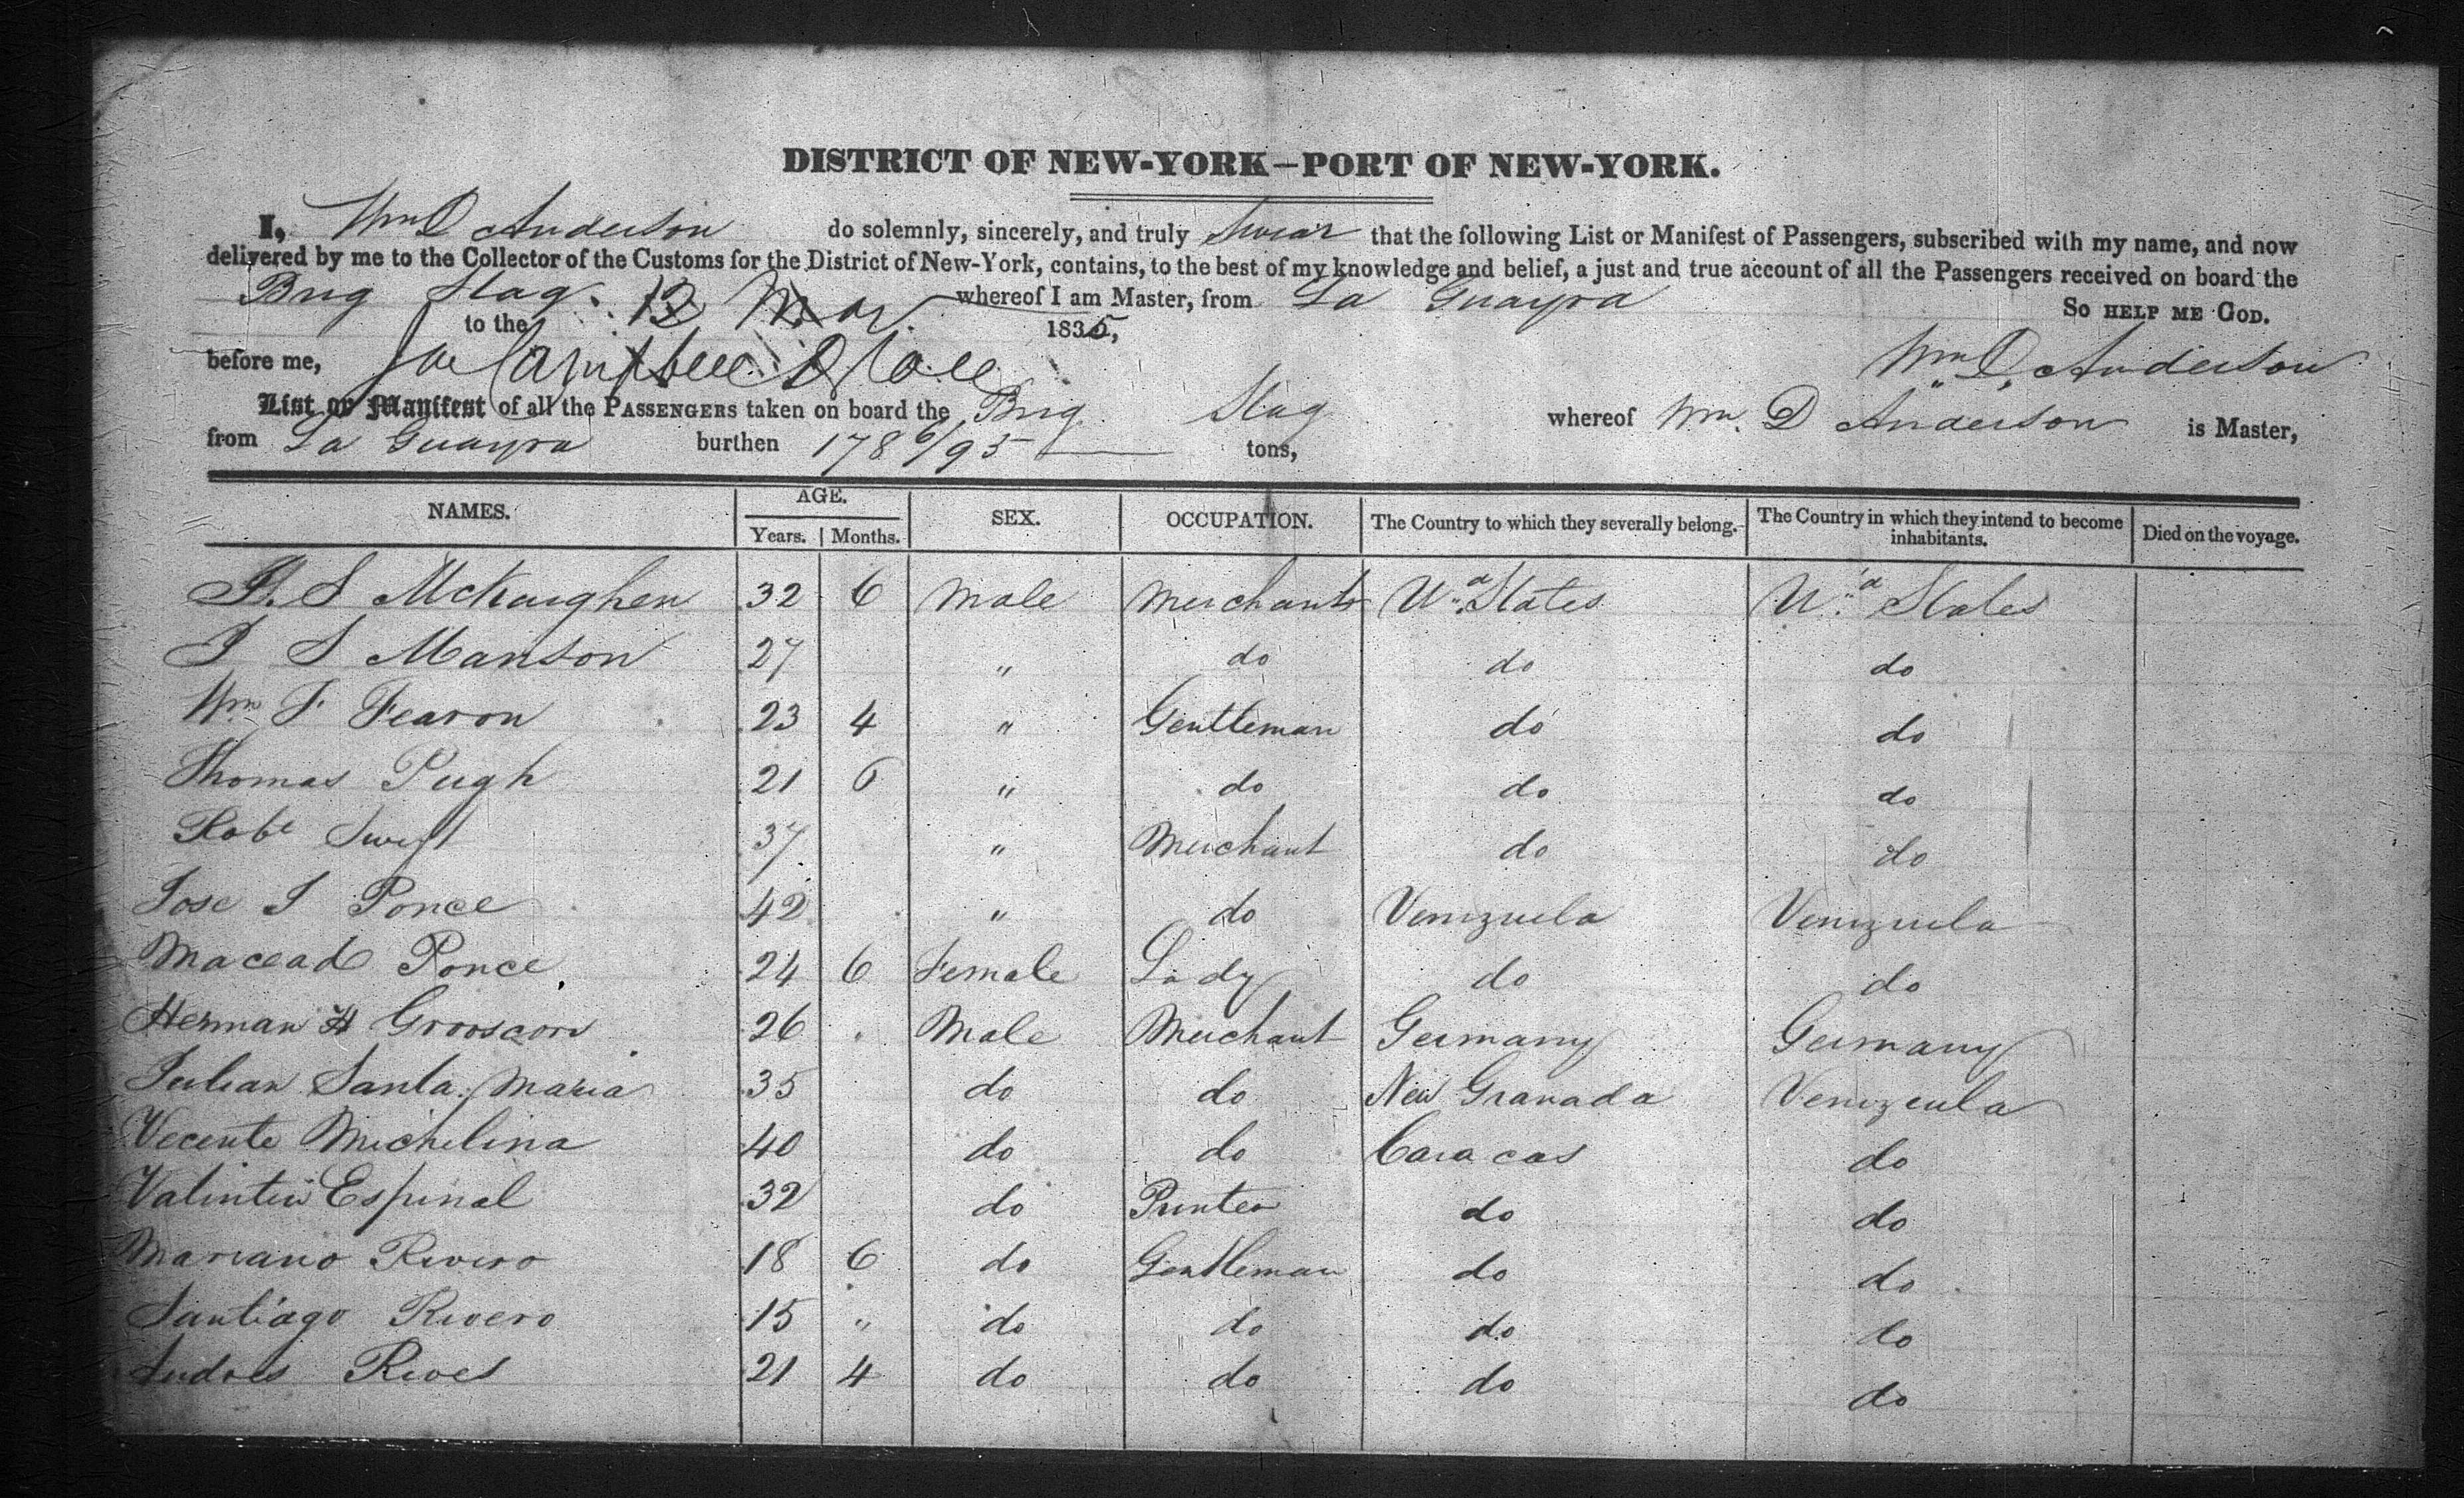 DISTRICT OF NEW-YORK—PORT OF NEW-YORK.
I, Wm D Anderson do solemnly, sincerely, and truly Swear that the following List or Manifest of Passengers, subscribed with my name, and now
delivered by me to the Collector of the Customs for the District of New-York, contains, to the best of my knowledge and belief, a just and true account of all the Passengers received on board the
Brig Stag. whereof I am Master, from La Guayra So HELP ME GOD.
to the 12 Mar 1835,
before me, Wm D. Anderson
List or Manifest of all the PASSENGERS taken on board the Brig Stag whereof Wm. D Anderson is Master,
from La Guayra burthen 178 6/95 tons,
NAMES. AGE. SEX. OCCUPATION. The Country to which they severally belong. The Country in which they intend to become inhabitants. Died on the voyage.
Years. Months.
S McKaughen 32 6 Male Merchants Ud. States Ud States
J S Manson 27 " do do do
Wm F Fearon 23 4 " Gentleman do do
Thomas Pugh 21 6 " do do do
Robt Swift 37 " Merchant do do
Jose J Ponce 42 " do Venizuela Venizuela
Macead Ponce 24 6 Female Lady do do
Herman H Grooscors 26 Male Merchant Germany Germany
Julian Santa Maria 35 do do New Granada Venizuela
Vecente Michelina 40 do do Caracas do
Valintin Espinal 32 do Printer do do
Mariano Rivero 18 6 do Gentleman do do
Santiago Rivero 15 " do do do do
Andres Rives 21 4 do do do do